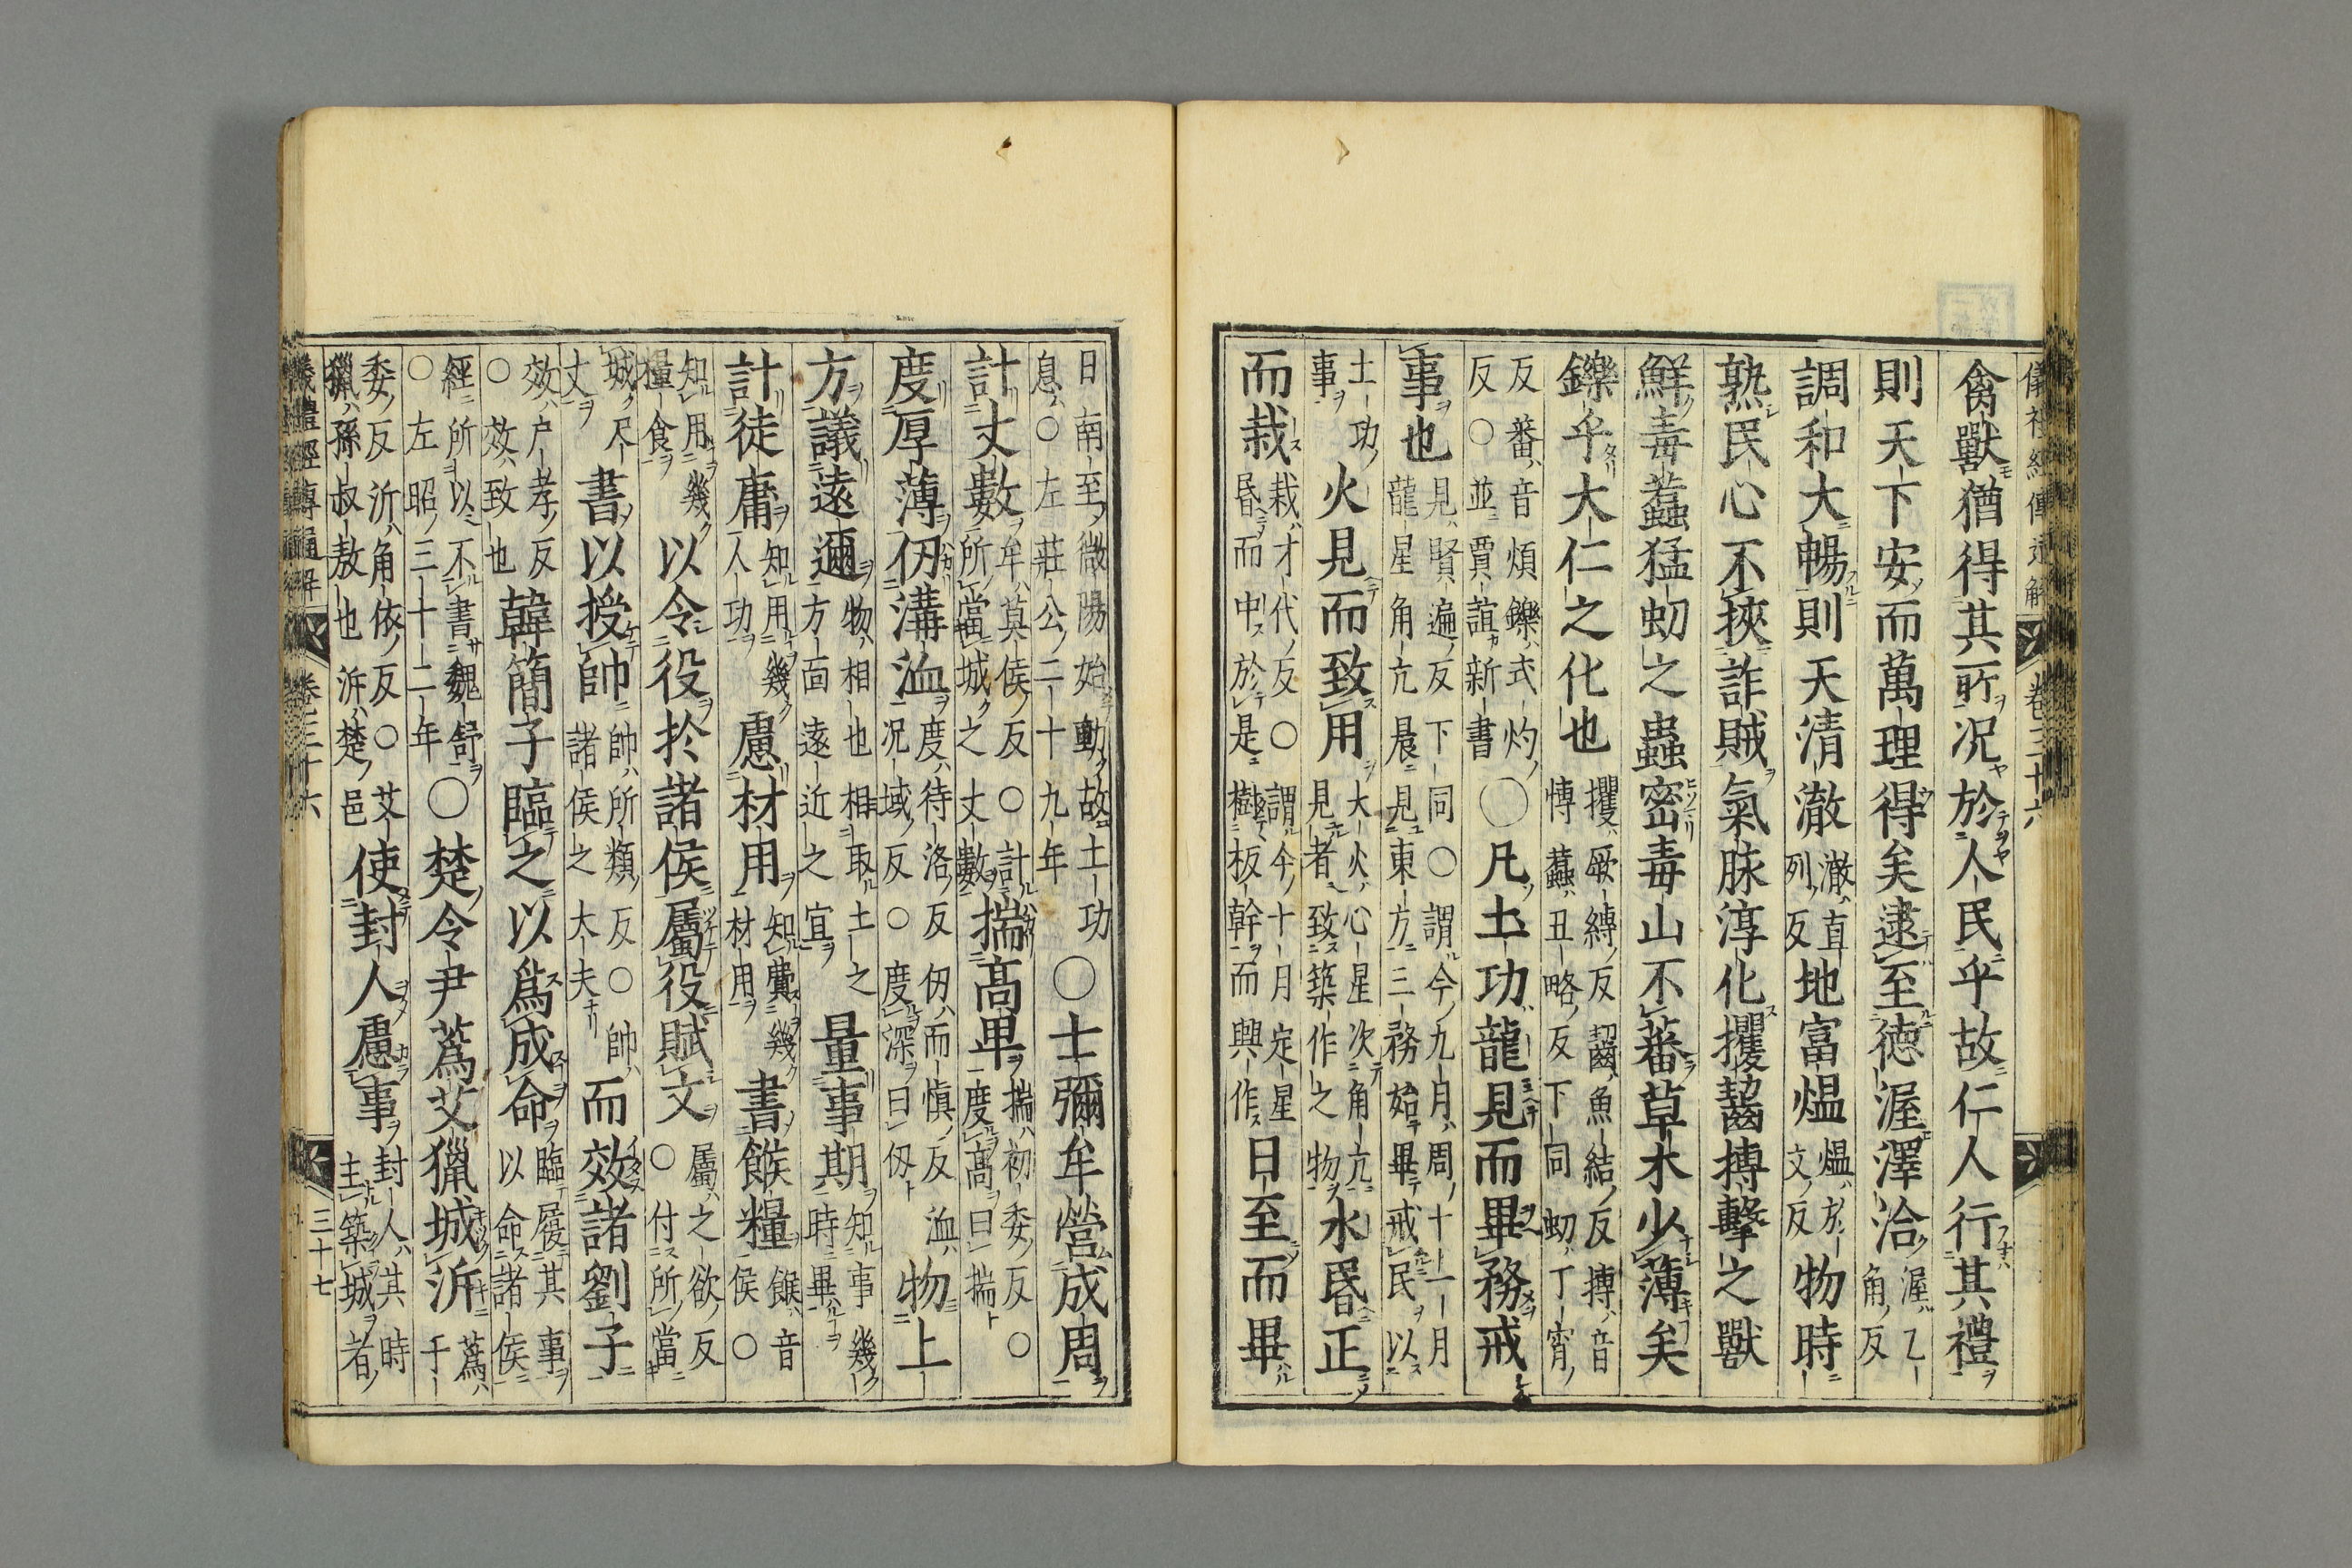 儀禮經傳通解 卷三十六
禽獸猶得其所况於人民乎故仁人行其禮
則天下安而萬理得矣逮至德渥澤洽渥乙角反
調和大暢則天清澈澈直列反地富熅熅於文反物時
熟民心不挾詐賊氣脉淳化攫齧搏擊之獸
鮮毒蠚猛虭之蟲密毒山不蕃草木少薄矣
鑠乎大仁之化也攫厥縛反齧魚結反搏音博蠚丑略反下同虭丁宵
反蕃音煩鑠式灼反○並賈誼新書○凡土功龍見而畢務戒
事也見賢遍反下同○謂今九月周十一月龍星角亢晨見東方三務始畢戒民以
土功事火見而致用大火心星次角亢見者致築作之物水昏正
而栽栽才代反○謂今十月定星昏而中於是樹板幹而興作日至而畢
日南至微陽始動故土功息○左莊公二十九年○士彌牟營成周
計丈數牟莫侯反○計所當城之丈數揣高卑揣初委反○度高曰揣
度厚薄仞溝洫度待洛反仞而慎反洫况域反○度深曰仞物土
方議遠邇物相也相取土之方面遠近之宜量事期知事幾時畢
計徒庸知用幾人功慮材用知費幾材用書餱糧餱音侯○
知用幾糧食以令役於諸侯屬役賦文屬之欲反○付所當
城尺丈書以授帥帥所類反○帥諸侯之大夫而效諸劉子
效户孝反○效致也韓簡子臨之以爲成命臨履其事以命諸侯
經所以不書魏舒○左昭三十二年○楚令尹蔿艾獵城沂蔿于
委反沂角依反○艾獵孫叔敖也沂楚邑使封人慮事封人其時主築城者
儀禮經傳通解 卷三十六 三十七